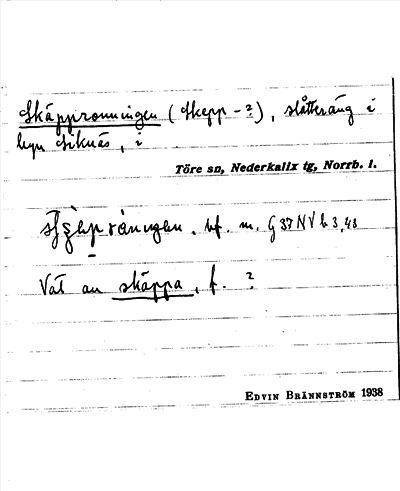 Skäpprönningen (Skepp-?), slåtteräng i
byn Siknäs, i
Töre sn, Nederkalix tg, Norrb. l.
bf. m. G 37 NV b 3,48
Vat au skäppa, f. ?
EDVIN BRÄNNSTRÖM 1938